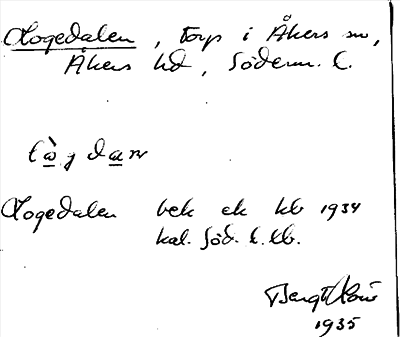 Logedalen, torp i Åkers sn,
Åkers hd, Söderm. l.
lò̱g da̱n
Logedalen bek ek kb 1934
kal. Söd. l. kb.
Bengt
1935